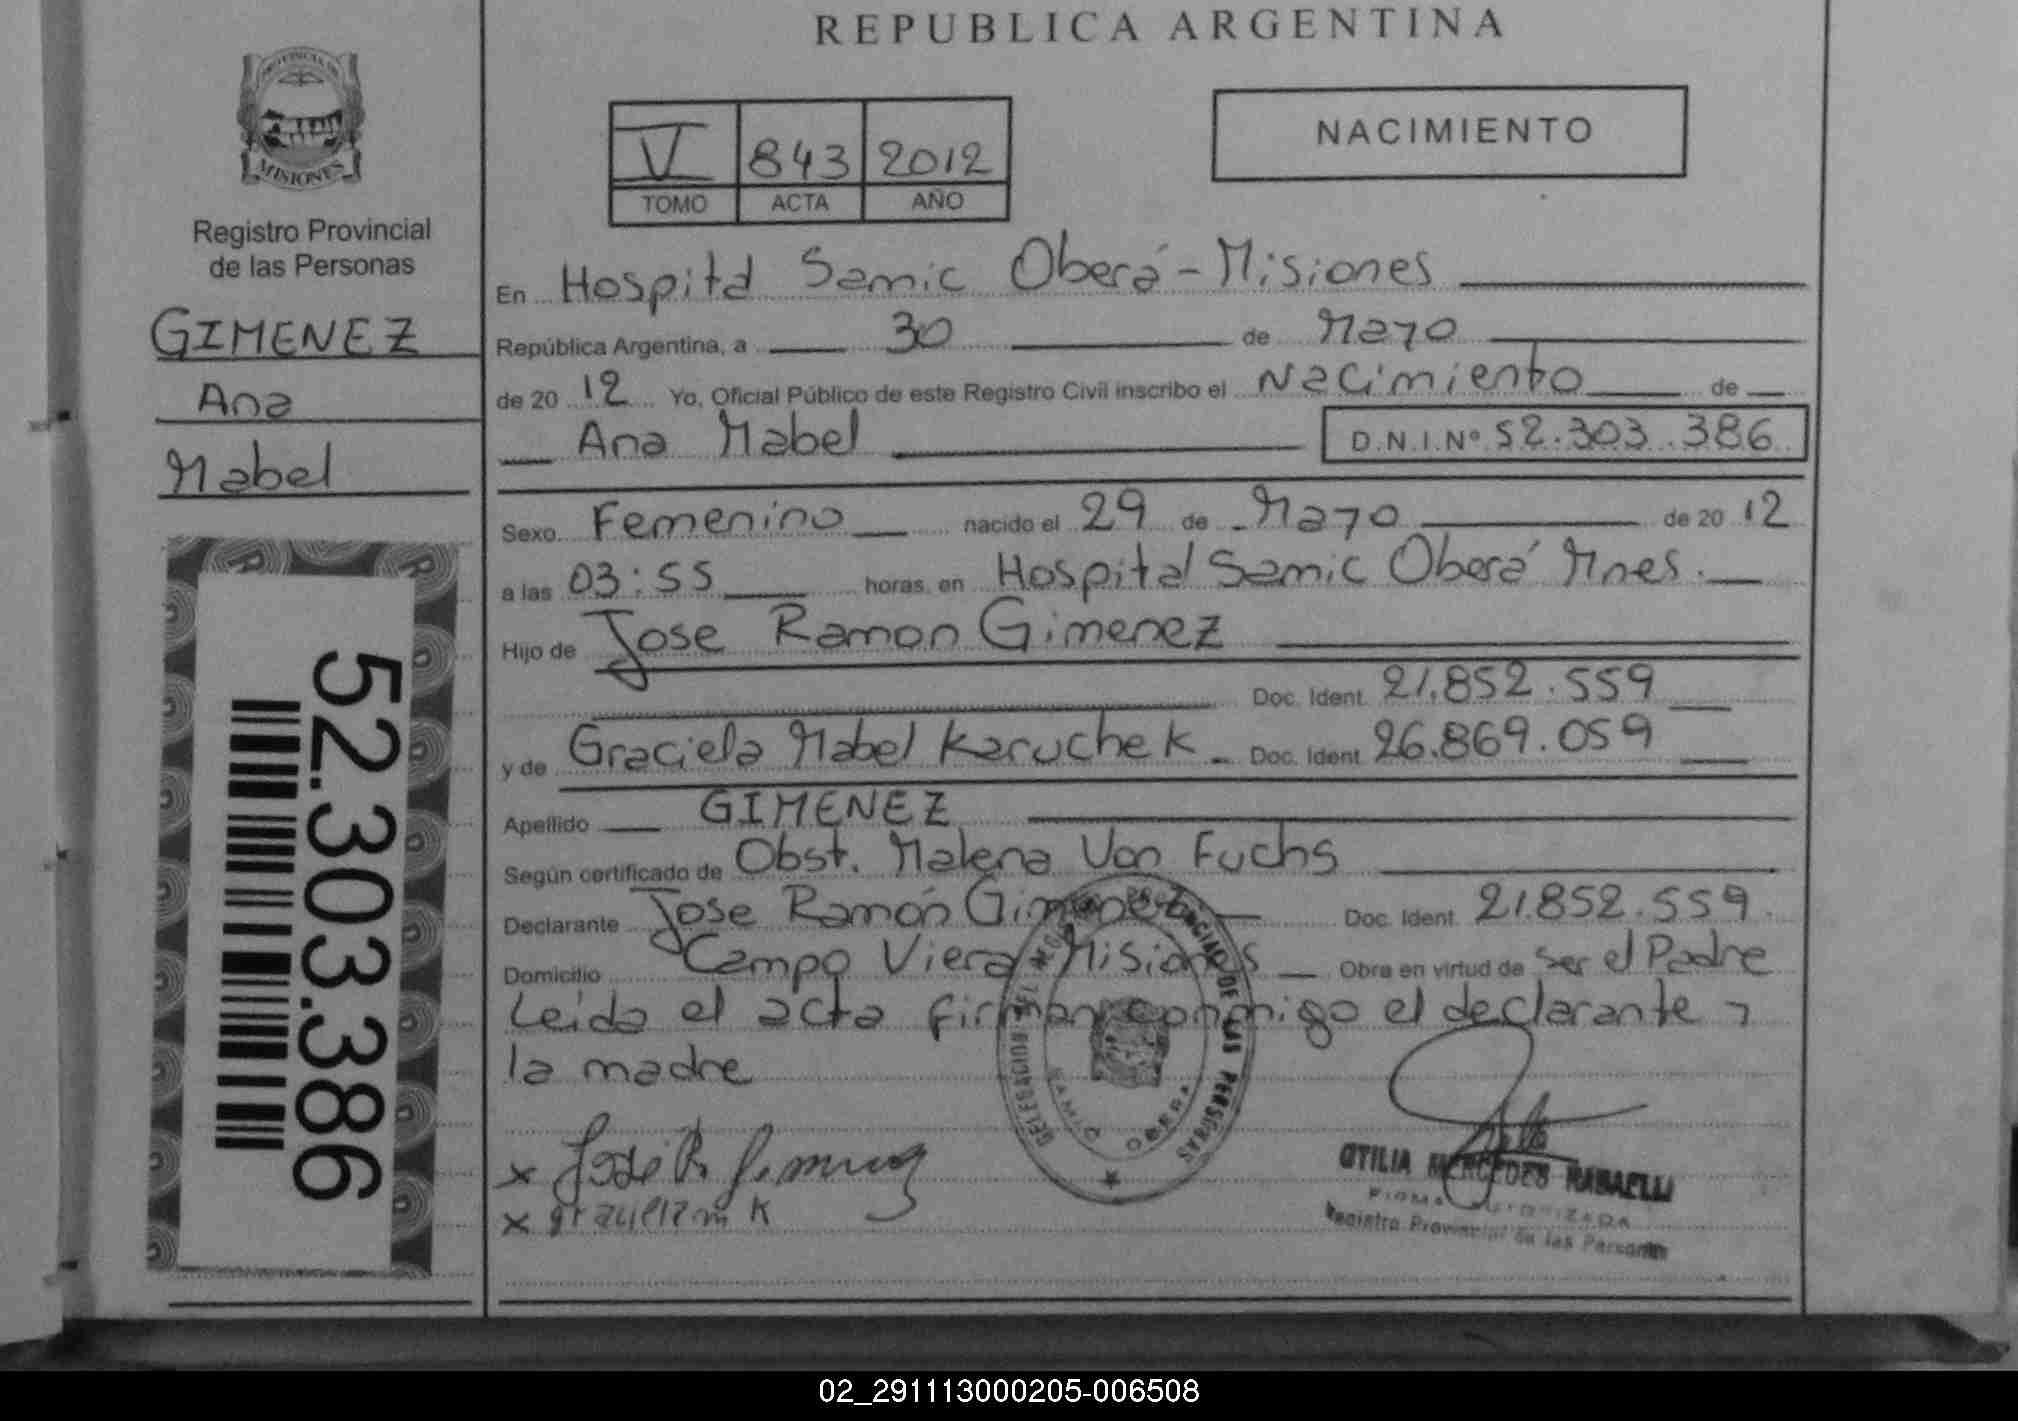 REPUBLICA ARGENTINA
PROVINCIA DE
MISIONES
Registro Provincial
de las Personas
GIMENEZ
Ana
Mabel
52.303.386
V 843 2012
TOMO ACTA AÑO
NACIMIENTO
En Hospital Samic Oberá - Misiones
República Argentina, a 30 de Mayo
de 20 12 Yo, Oficial Público de este Registro Civil inscribo el Nacimiento de
Ana Mabel D.N.I.Nº 52.303.386
Sexo Femenino nacido el 29 de Mayo de 20 12
a las 03:55 horas, en Hospital Samic Oberá Mnes.
Hijo de Jose Ramon Gimenez
Doc. Ident. 21.852.559
y de Graciela Mabel Karuchek Doc. Ident. 26.869.059
Apellido GIMENEZ
Según certificado de Obst. Malena Von Fuchs
Declarante Jose Ramón Gimenez Doc. Ident. 21.852.559.
Domicilio Campo Viera Misiones Obra en virtud de ser el Padre
Leida el acta firman conmigo el declarante y
la madre
x José R. Gimenez
x m K
DE LAS PERSONAS
SAMIC OBERA
OTILIA MERCEDES
FIRMA AUTORIZADA
Registro Provincial de las Personas
02_291113000205-006508